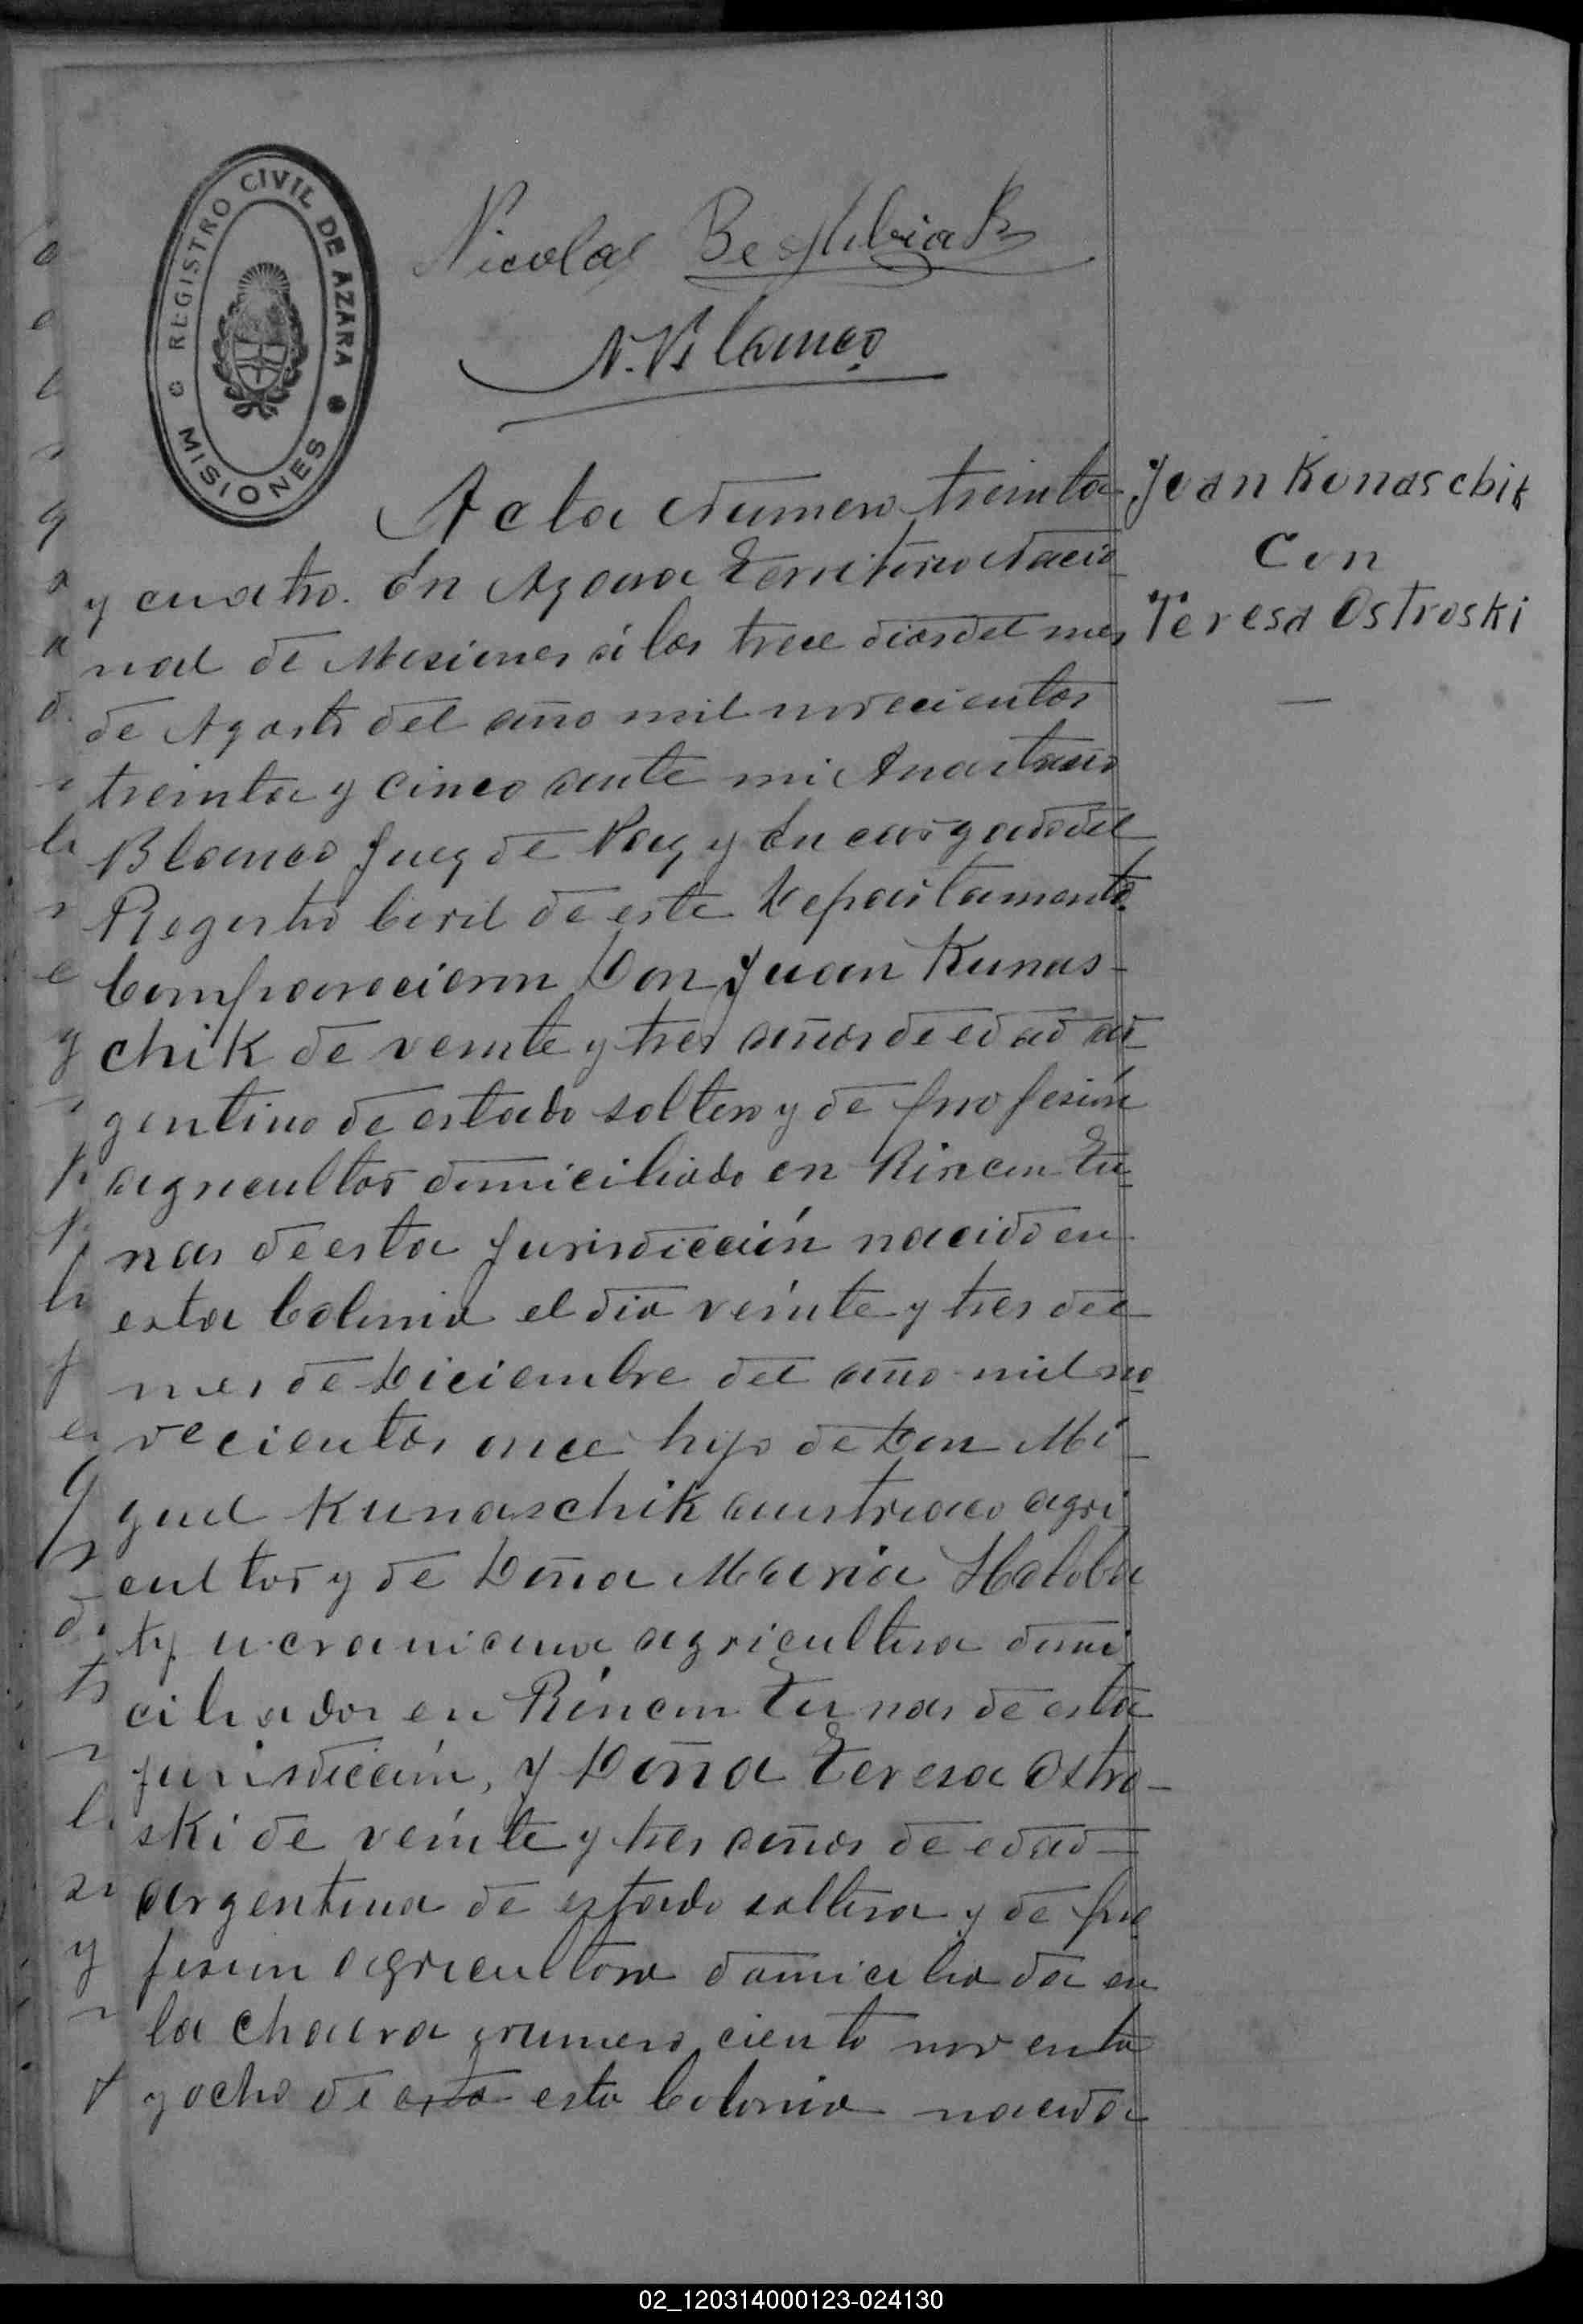 REGISTRO CIVIL DE AZARA
MISIONES
Nicolas
A. Blanco
Acta Numero treinta
y cuatro. En Azara Territorio Nacio
nal de Misiones á los trece dias del mes
de Agosto del año mil novecientos
treinta y cinco ante mi Anastasio
Blanco Juez de Paz y Encargado del
Registro Civil de este Departamento.
Comparecieron Don Juan Kunas-
chik de veinte y tres años de edad ar
gentino de estado soltero y de profesión
agricultor domiciliado en Rincon Tu
nas de esta jurisdicción nacido en
esta Colonia el dia veinte y tres del
mes de Diciembre del año mil no
vecientos once hijo de Don Mi
guel Kunaschik austriaco agri
cultor y de Doña Maria Holoba
ty ucraniana agricultora domi
ciliados en Rincon Tunas de esta
jurisdicción, y Doña Teresa Ostro-
ski de veinte y tres años de edad
argentina de estado soltera y de pro
fesion agricultora domiciliada en
la chacra numero ciento noventa
y ocho de esta esta Colonia nacida
Juan Kunaschik
Con
Teresa Ostroski
02_120314000123-024130